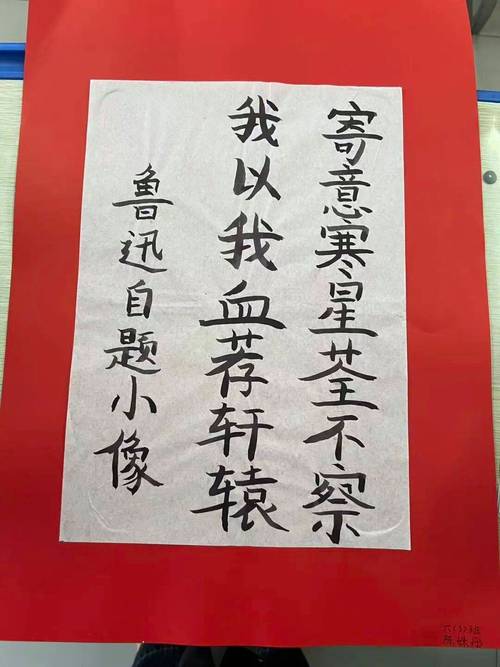 寄意寒星荃不察
我以我血荐轩辕
鲁迅自题小像
六(3)班
陈姝丹